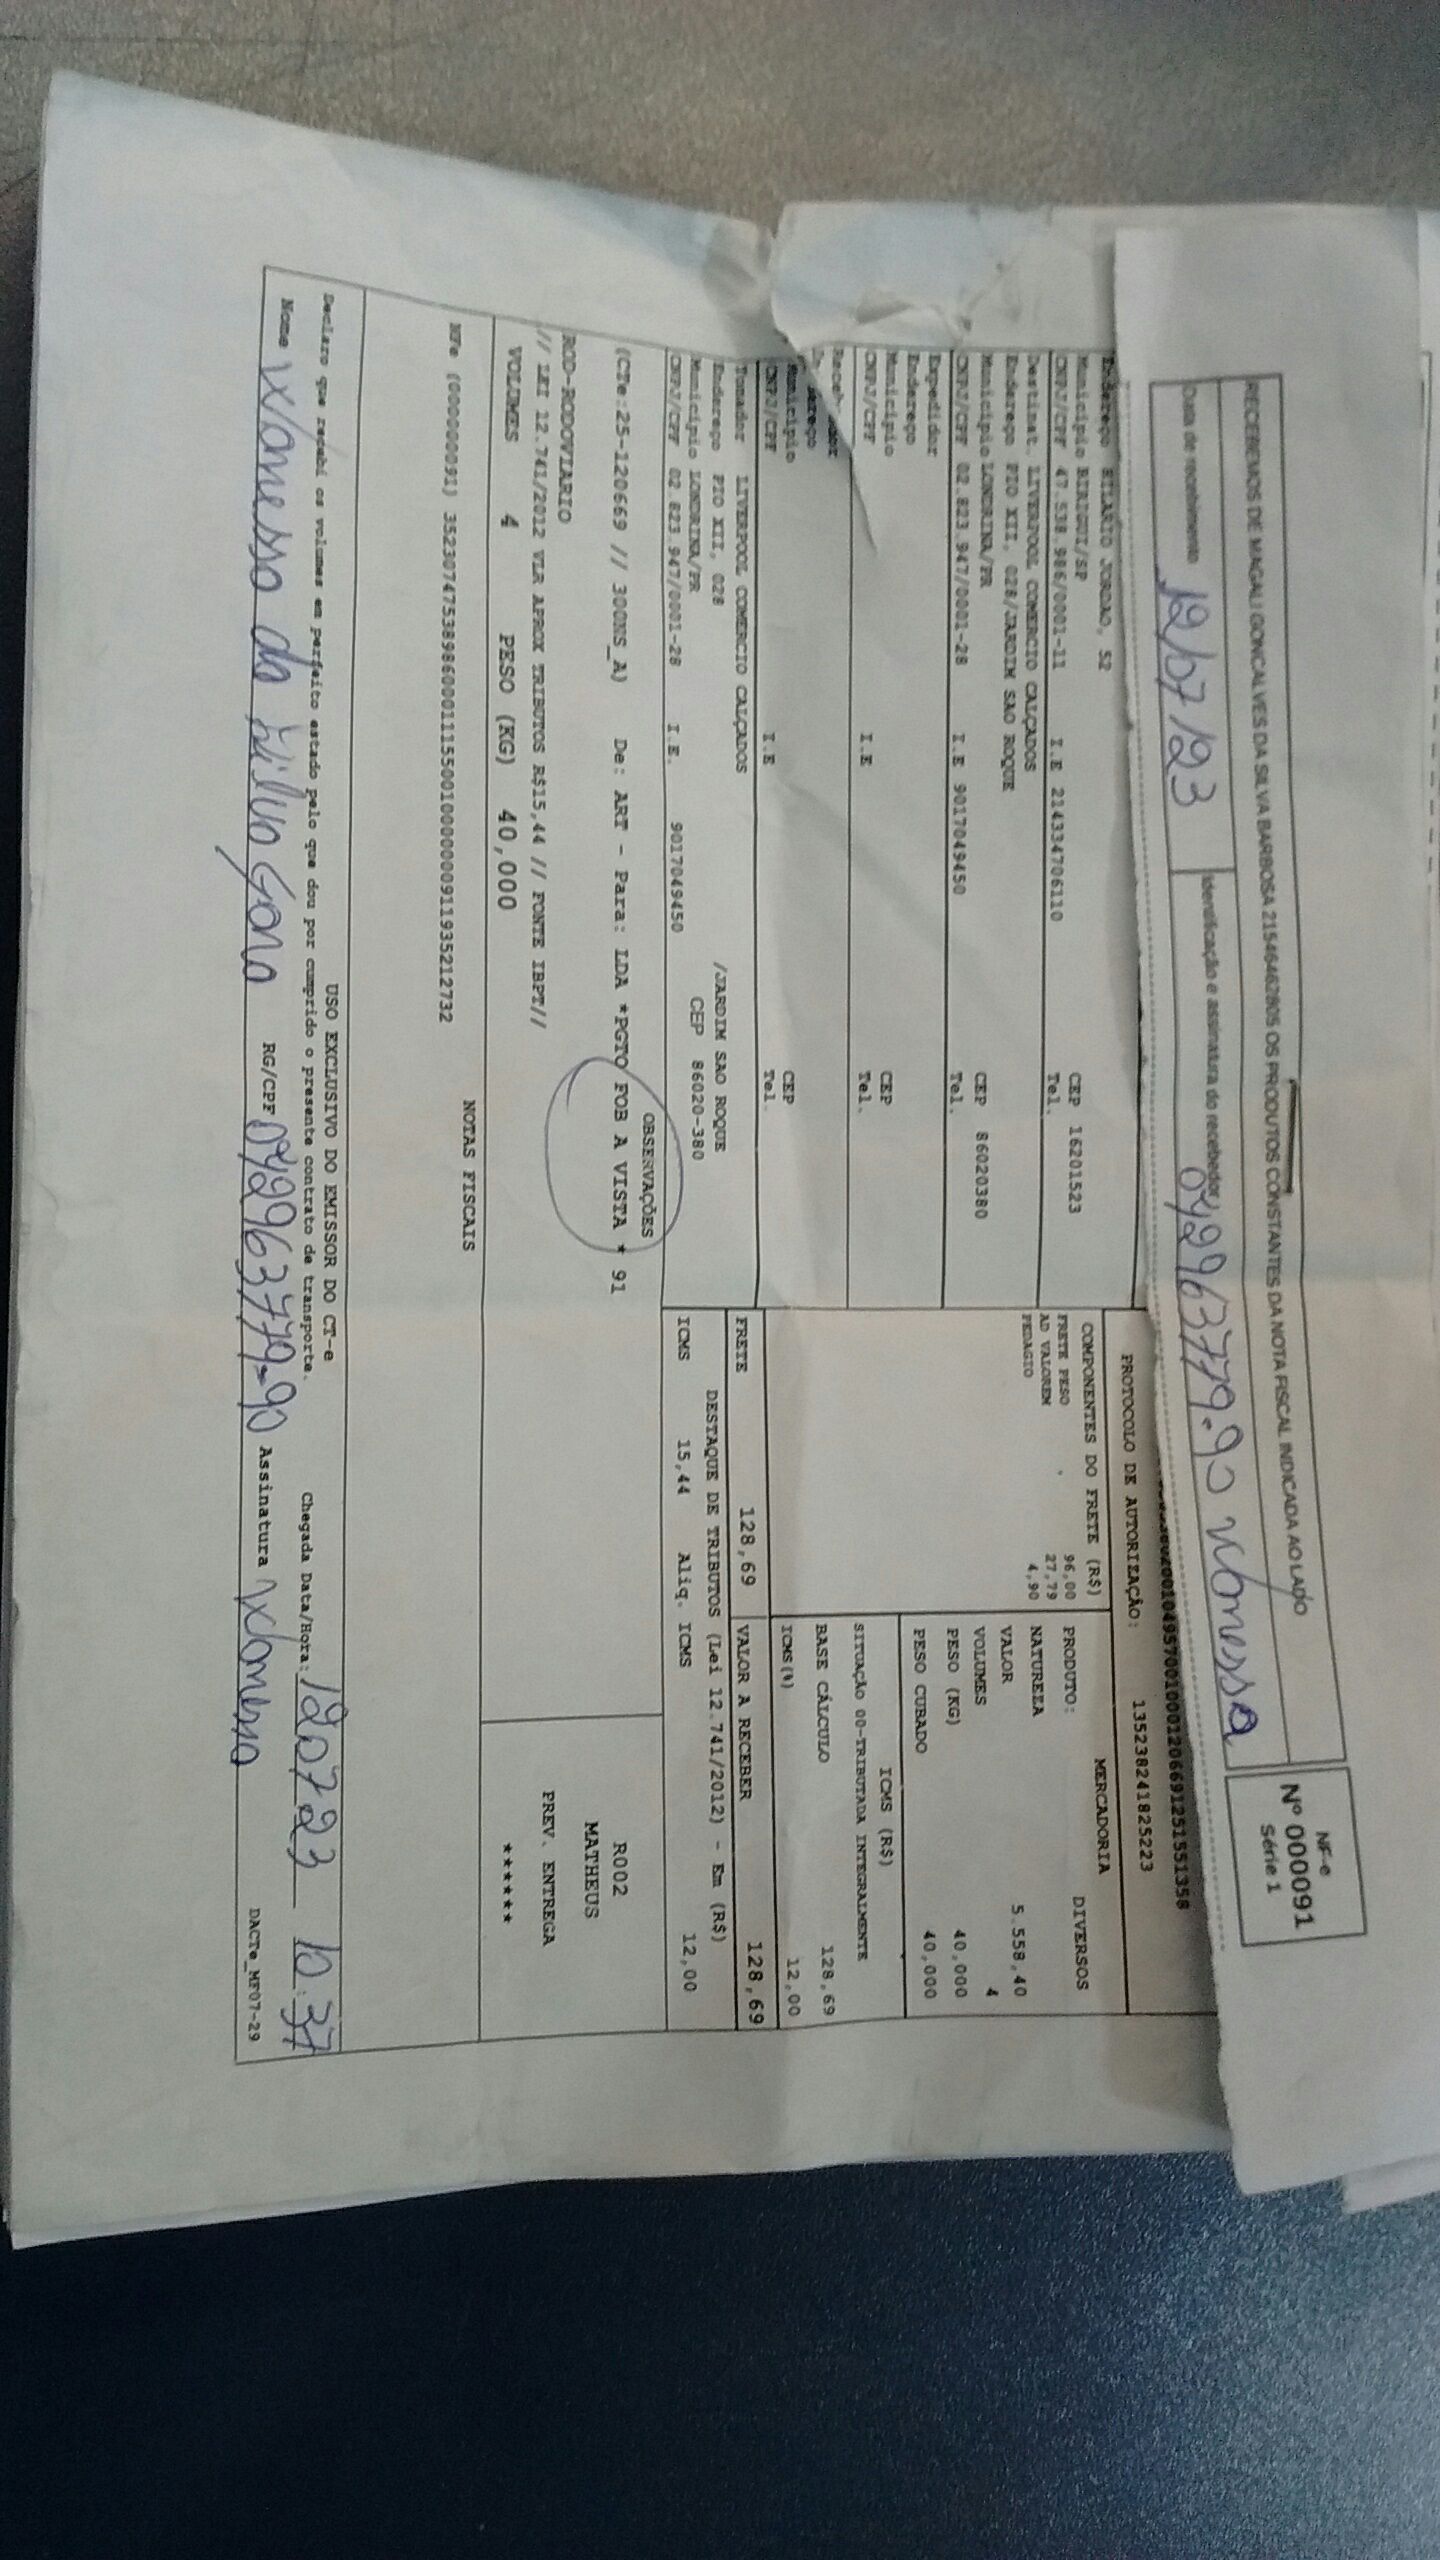 RECEBEMOS DE MAGALI GONCALVES DA SILVA BARBOSA 21546462805 OS PRODUTOS CONSTANTES DA NOTA FISCAL INDICADA AO LADO
Data de recebimento 12/07/23
Identificação e assinatura do recebedor 042963779-90 Wanessa
NF-e
Nº 000091
Série 1
PROTOCOLO DE AUTORIZAÇÃO: 135238241825223
Endereço HILARIO JORDAO, 52
Município BIRIGUI/SP CEP 16201523
CNPJ/CPF 47.538.986/0001-11 I.E 214334706110 Tel.
Destinat. LIVERPOOL COMERCIO CALÇADOS
Endereço PIO XII, 028/JARDIM SAO ROQUE
Município LONDRINA/PR CEP 86020380
CNPJ/CPF 02.823.947/0001-28 I.E 9017049450 Tel.
Expedidor
Endereço
Município CEP
CNPJ/CPF I.E Tel.
Município CEP
CNPJ/CPF I.E Tel.
Tomador LIVERPOOL COMERCIO CALÇADOS
Endereço PIO XII, 028 /JARDIM SAO ROQUE
Município LONDRINA/PR CEP 86020-380
CNPJ/CPF 02.823.947/0001-28 I.E. 9017049450
COMPONENTES DO FRETE (R$)
FRETE PESO 96,00
AD VALOREM 27,79
PEDAGIO 4,90
MERCADORIA
PRODUTO: DIVERSOS
NATUREZA
VALOR 5.558,40
VOLUMES 4
PESO (KG) 40,000
PESO CUBADO 40,000
ICMS (R$)
SITUAÇÃO 00-TRIBUTADA INTEGRALMENTE
BASE CÁLCULO 128,69
ICMS(%) 12,00
FRETE 128,69 VALOR A RECEBER 128,69
DESTAQUE DE TRIBUTOS (Lei 12.741/2012) - Em (R$)
ICMS 15,44 Aliq. ICMS 12,00
OBSERVAÇÕES
(CTe:25-120669 // 300NS_A) De: ART - Para: LDA *PGTO FOB A VISTA * 91
ROD-RODOVIARIO
// LEI 12.741/2012 VLR APROX TRIBUTOS R$15,44 // FONTE IBPT//
VOLUMES 4 PESO (KG) 40,000
R002
MATHEUS
PREV. ENTREGA
******
NOTAS FISCAIS
NFe (000000091) 35230747538986000111550010000000911935212732
USO EXCLUSIVO DO EMISSOR DO CT-e
Declaro que recebi os volumes em perfeito estado pelo que dou por cumprido o presente contrato de transporte. Chegada Data/Hora: 120723 10:37
Nome Wanessa da Silva RG/CPF 042963779-90 Assinatura Wanessa
DACTe_MF07-29